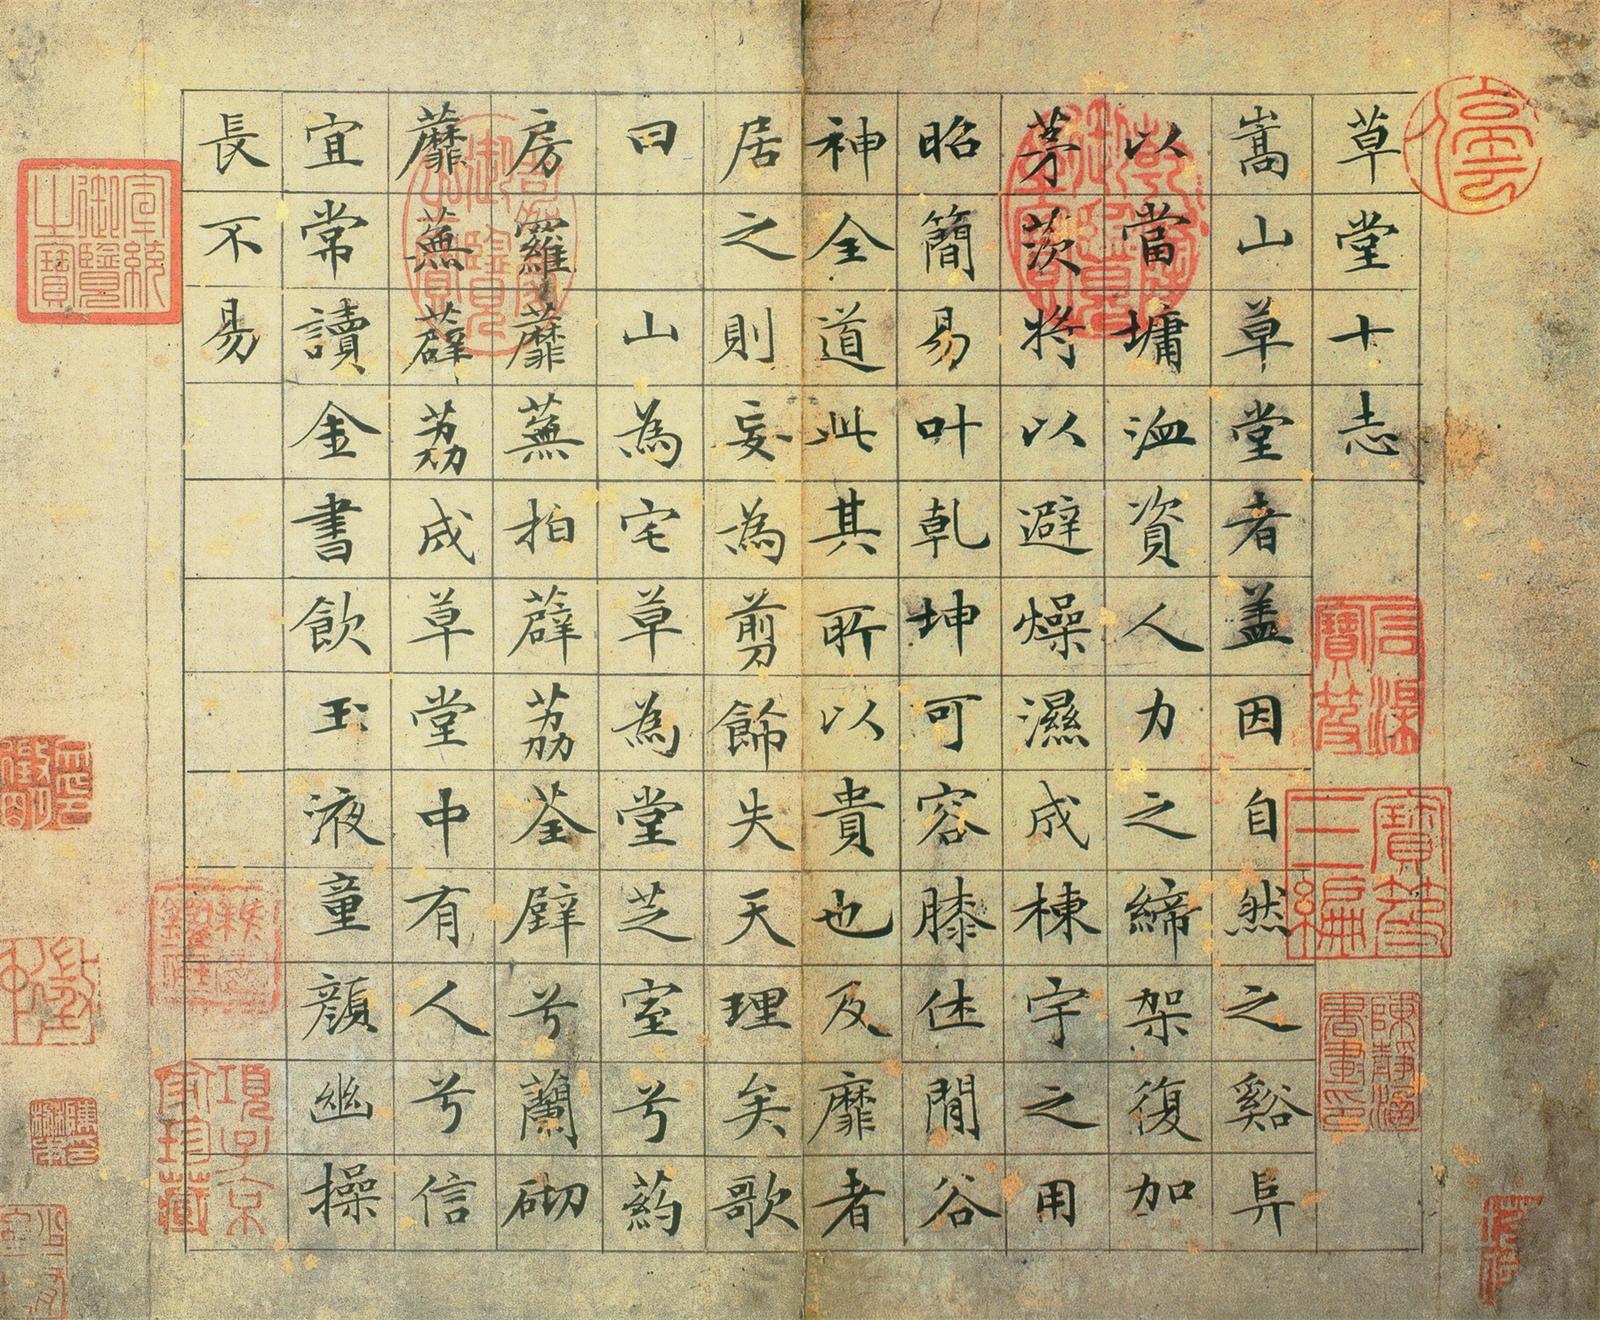 草堂十志
嵩山草堂者盖因自然之谿阜
以當墉洫資人力之締架復加
茅茨將以避燥濕成棟宇之用
昭簡易叶乾坤可容膝休閒谷
神全道此其所以貴也及靡者
居之則妄為剪飾失天理矣歌
曰 山為宅草為堂芝室兮葯
房羅蘼蕪拍薜荔荃壁兮蘭砌
蘼蕪薜荔成草堂中有人兮信
宜常讀金書飲玉液童顏幽操
長不易
石渠寶笈
寶笈三編
乾隆御覽之寶
嘉慶御覽之寶
宣統御覽之寶
項子京家珍藏